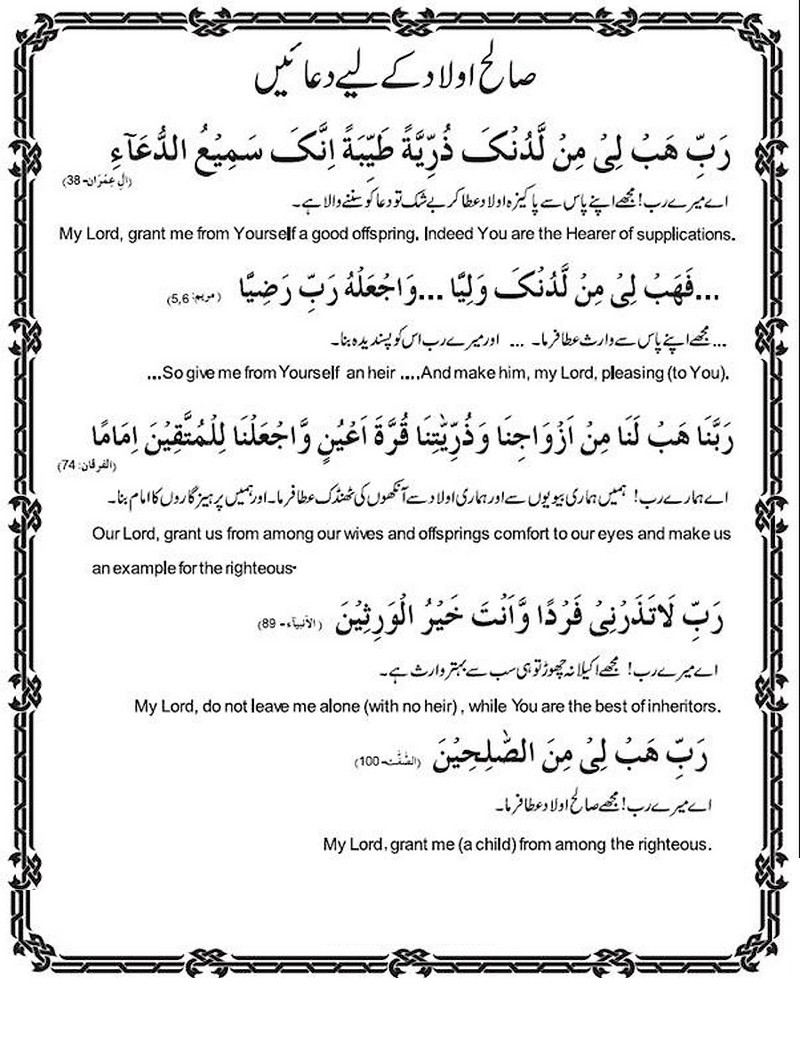 صالح اولاد کے لیے دعائیں
رَبِّ هَبْ لِیْ مِنْ لَّدُنْکَ ذُرِّیَّةً طَیِّبَةً اِنَّکَ سَمِیْعُ الدُّعَآءِ
(اٰلِ عِمْرَان-38)
اے میرے رب! مجھے اپنے پاس سے پاکیزہ اولاد عطا کر بے شک تو دعا کو سننے والا ہے۔
My Lord, grant me from Yourself a good offspring. Indeed You are the Hearer of supplications.
...فَهَبْ لِیْ مِنْ لَّدُنْکَ وَلِیًّا ...وَاجْعَلْهُ رَبِّ رَضِیًّا (مریم: 5,6)
...مجھے اپنے پاس سے وارث عطا فرما۔ ... اور میرے رب اس کو پسندیدہ بنا۔
...So give me from Yourself an heir ....And make him, my Lord, pleasing (to You).
رَبَّنَا هَبْ لَنَا مِنْ اَزْوَاجِنَا وَذُرِّیّٰتِنَا قُرَّةَ اَعْیُنٍ وَّاجْعَلْنَا لِلْمُتَّقِیْنَ اِمَامًا
(الفرقان: 74)
اے ہمارے رب! ہمیں ہماری بیویوں سے اور ہماری اولاد سے آنکھوں کی ٹھنڈک عطا فرما۔ اور ہمیں پرہیزگاروں کا امام بنا۔
Our Lord, grant us from among our wives and offsprings comfort to our eyes and make us
an example for the righteous.
رَبِّ لَاتَذَرْنِیْ فَرْدًا وَّاَنْتَ خَیْرُ الْوٰرِثِیْنَ (الأنبیآء-89)
اے میرے رب! مجھے اکیلا نہ چھوڑ تو ہی سب سے بہتر وارث ہے۔
My Lord, do not leave me alone (with no heir), while You are the best of inheritors.
رَبِّ هَبْ لِیْ مِنَ الصّٰلِحِیْنَ (الصّٰفّٰت-100)
اے میرے رب! مجھے صالح اولاد عطا فرما۔
My Lord, grant me (a child) from among the righteous.